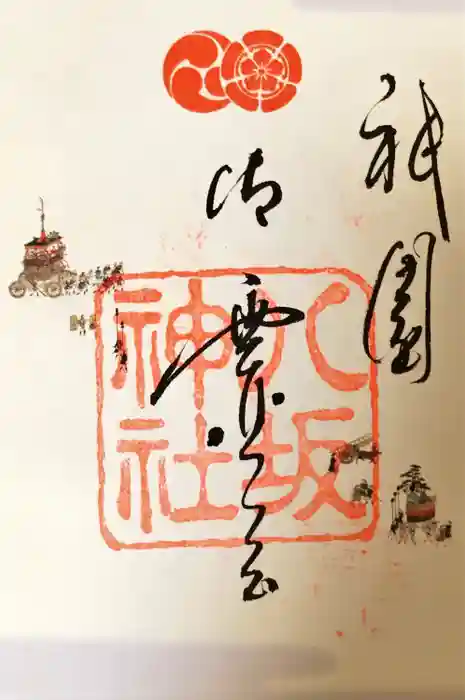 祇園
御霊会
八坂
神社